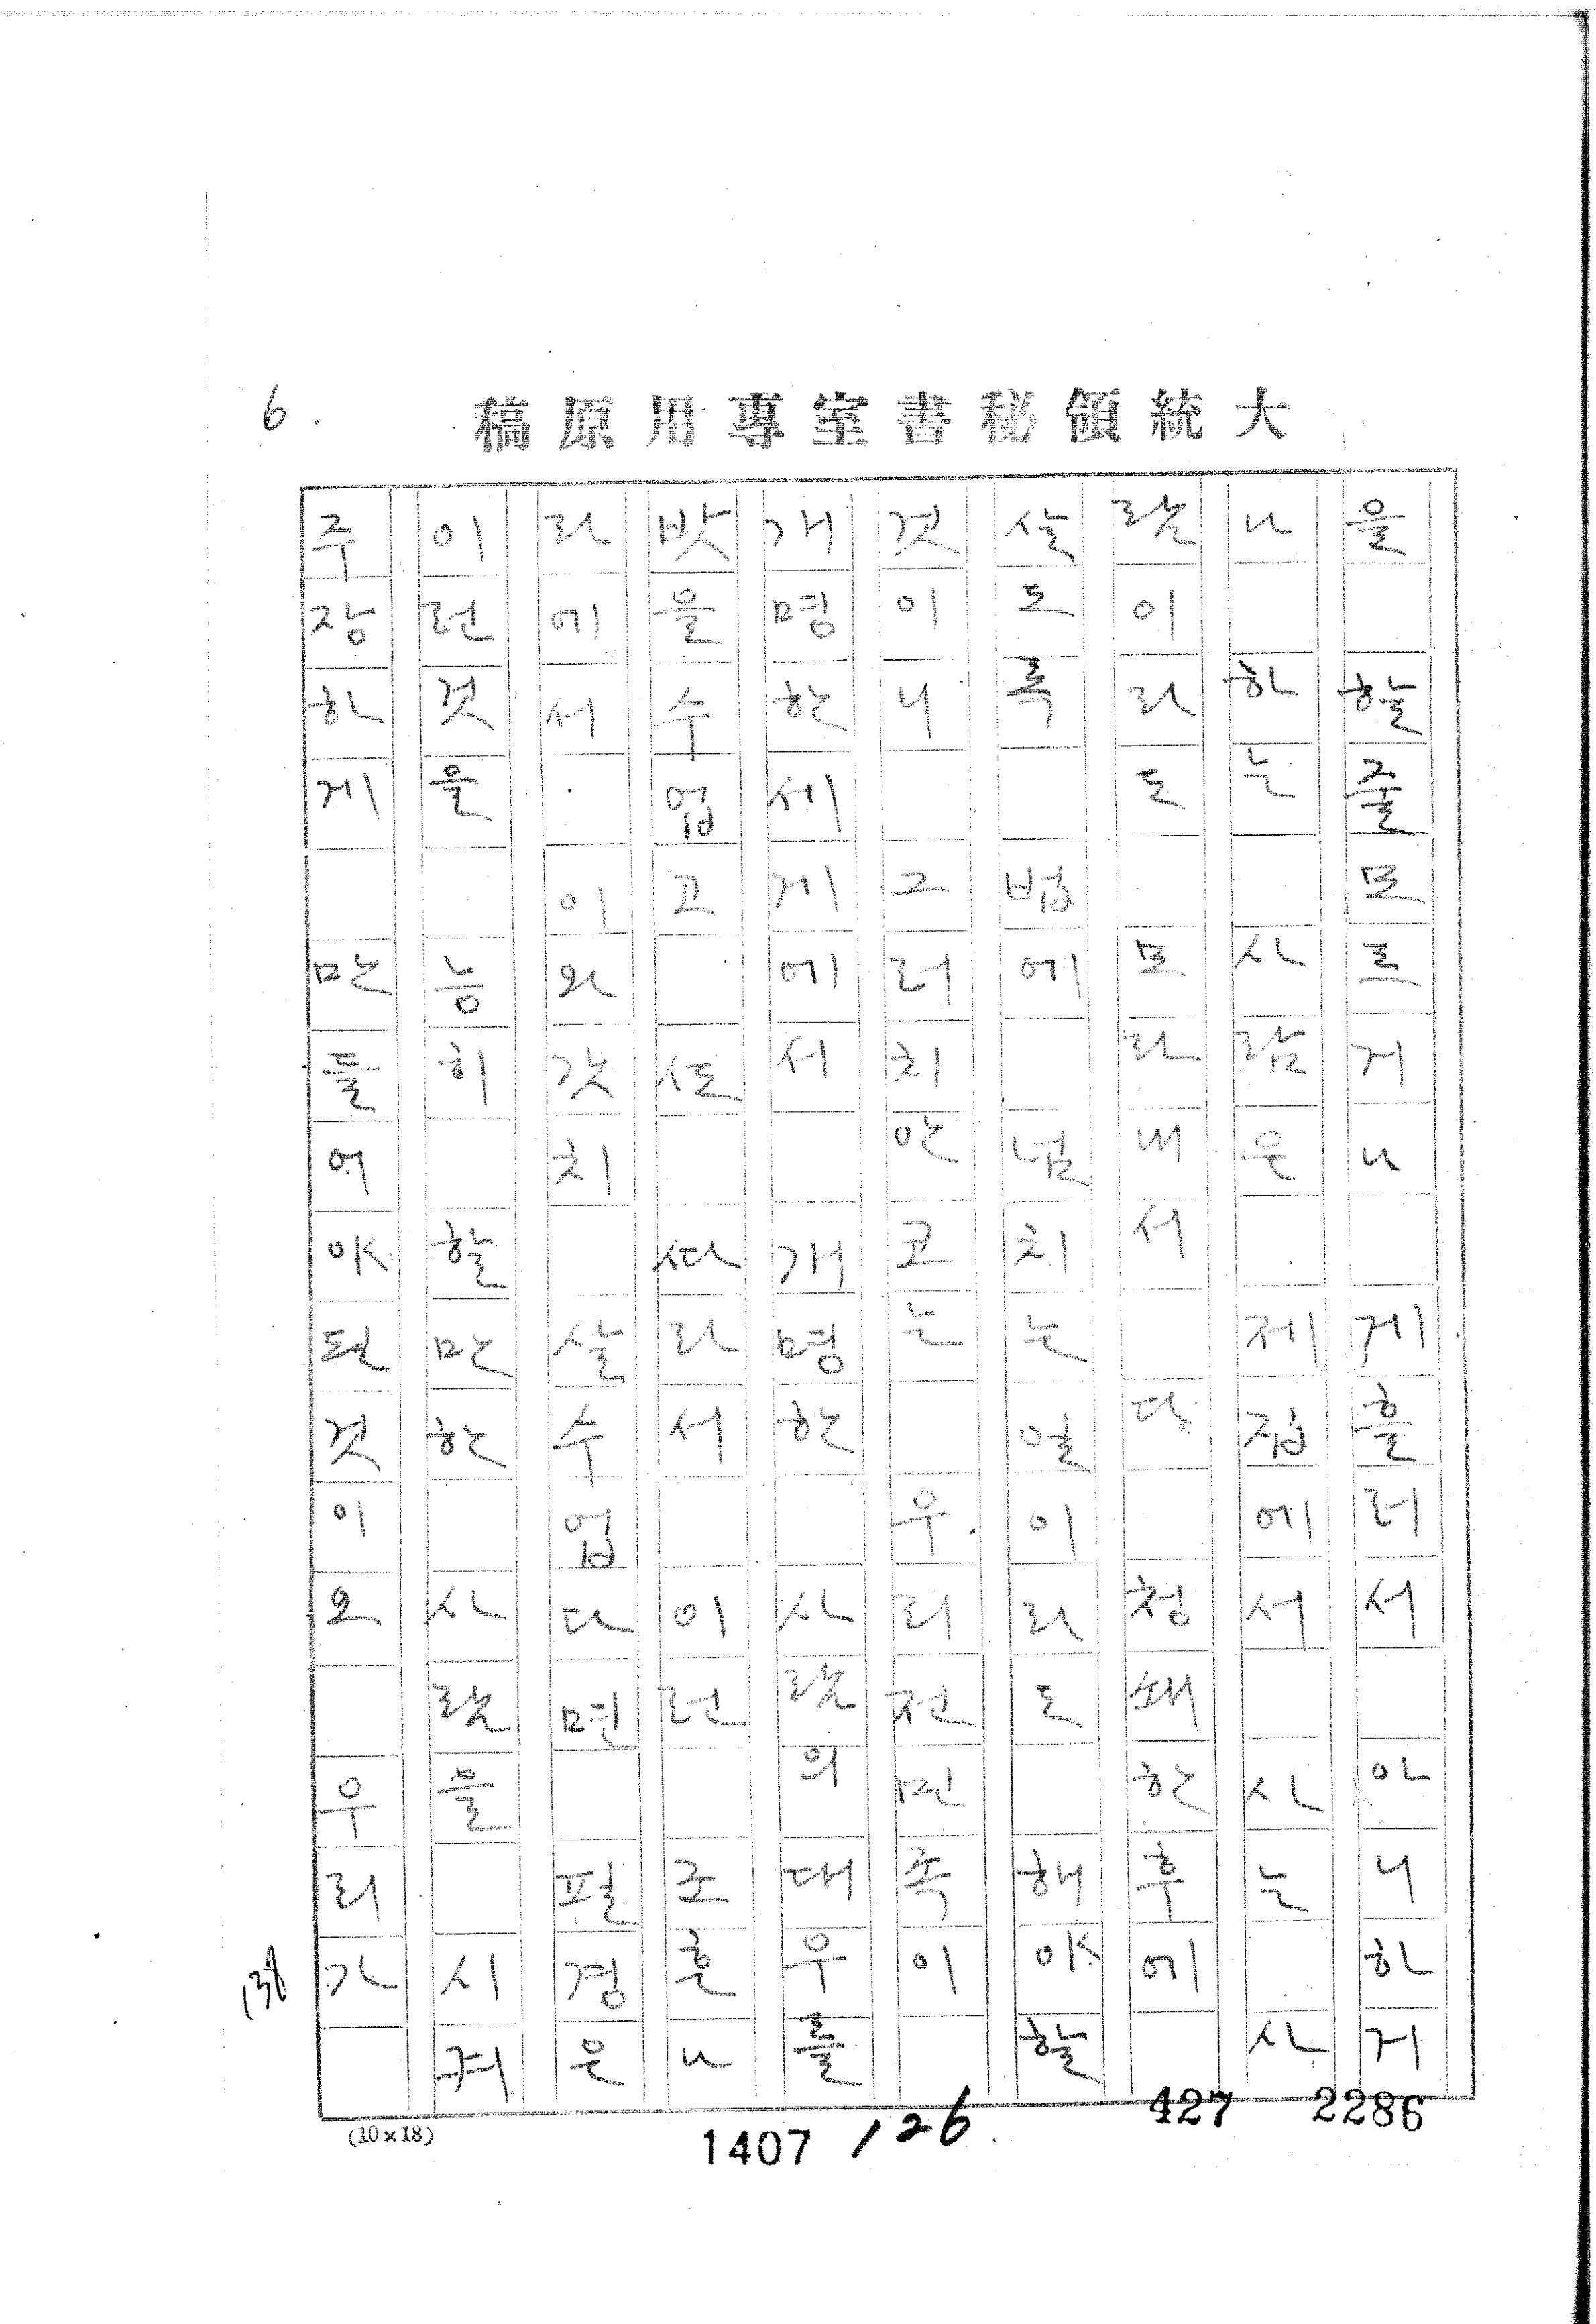 6.
大統領秘書室專用原稿
을 할줄모르거나 게흘러서 아니하거
나 하는 사람은 제집에서 사는 사
람이라도 모라내서 다 청쇄한후에
살도록 법에 넘치는 일이라도 해야할
것이니 그러치안코는 우리전민족이
개명한세게에서 개명한 사람의대우를
밧을수업고 ᄯᅩ ᄯᅡ라서 이런 조흔나
라에서 이와갓치 살수업다면 필경은
이런것을 능히 할만한 사람을 시켜
주장하게 만들어야될것이오 우리가
(10×18)
1407
126
427
2286